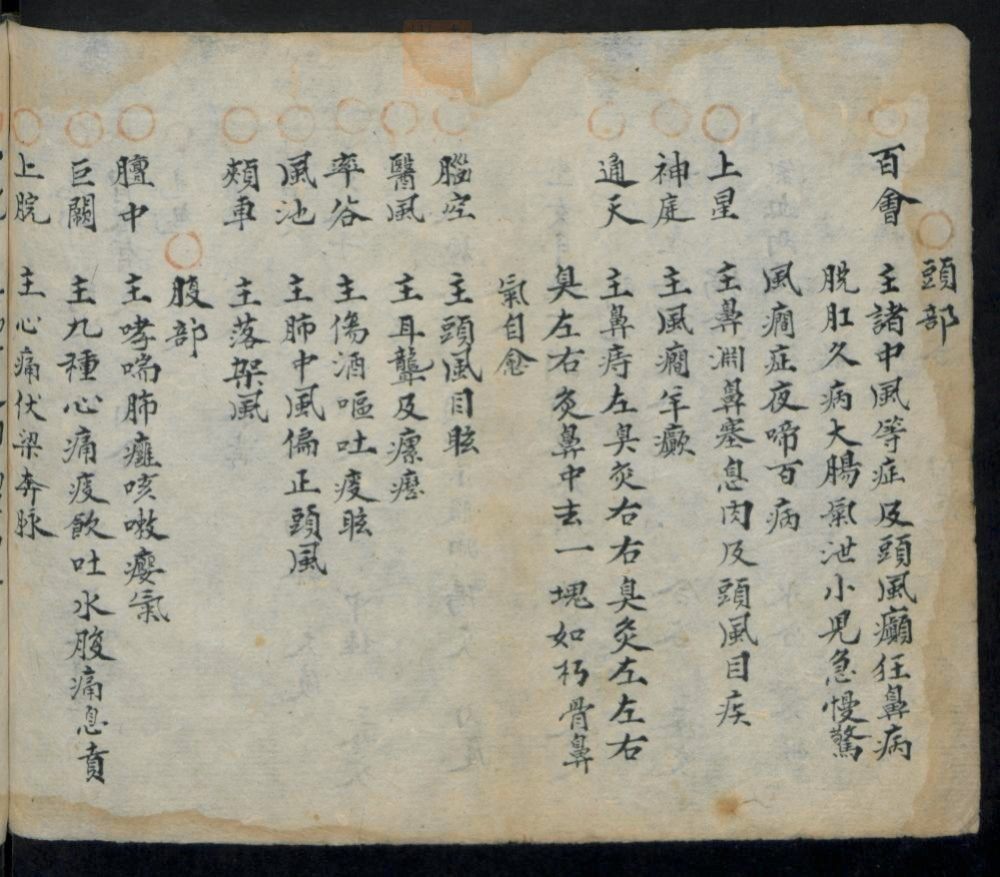 頭部
百會 主諸中風等症及頭風癲狂鼻病
脫肛久病大腸氣泄小児急慢驚
風癇症夜啼百病
上星 主鼻淵鼻塞息肉及頭風目疾
神庭 主風癇羊癲
通天 主鼻痔左臭灸右右臭灸左左右
臭左右灸鼻中去一塊如朽骨鼻
氣自愈
腦空 主頭風目眩
醫風 主耳聾及瘰癧
率谷 主傷酒嘔吐痰眩
風池 主肺中風偏正頭風
頰車 主落架風
腹部
膻中 主哮喘肺癰咳嗽癭氣
巨闕 主九種心痛痰飲吐水腹痛息賁
上脘 主心痛伏梁奔脉